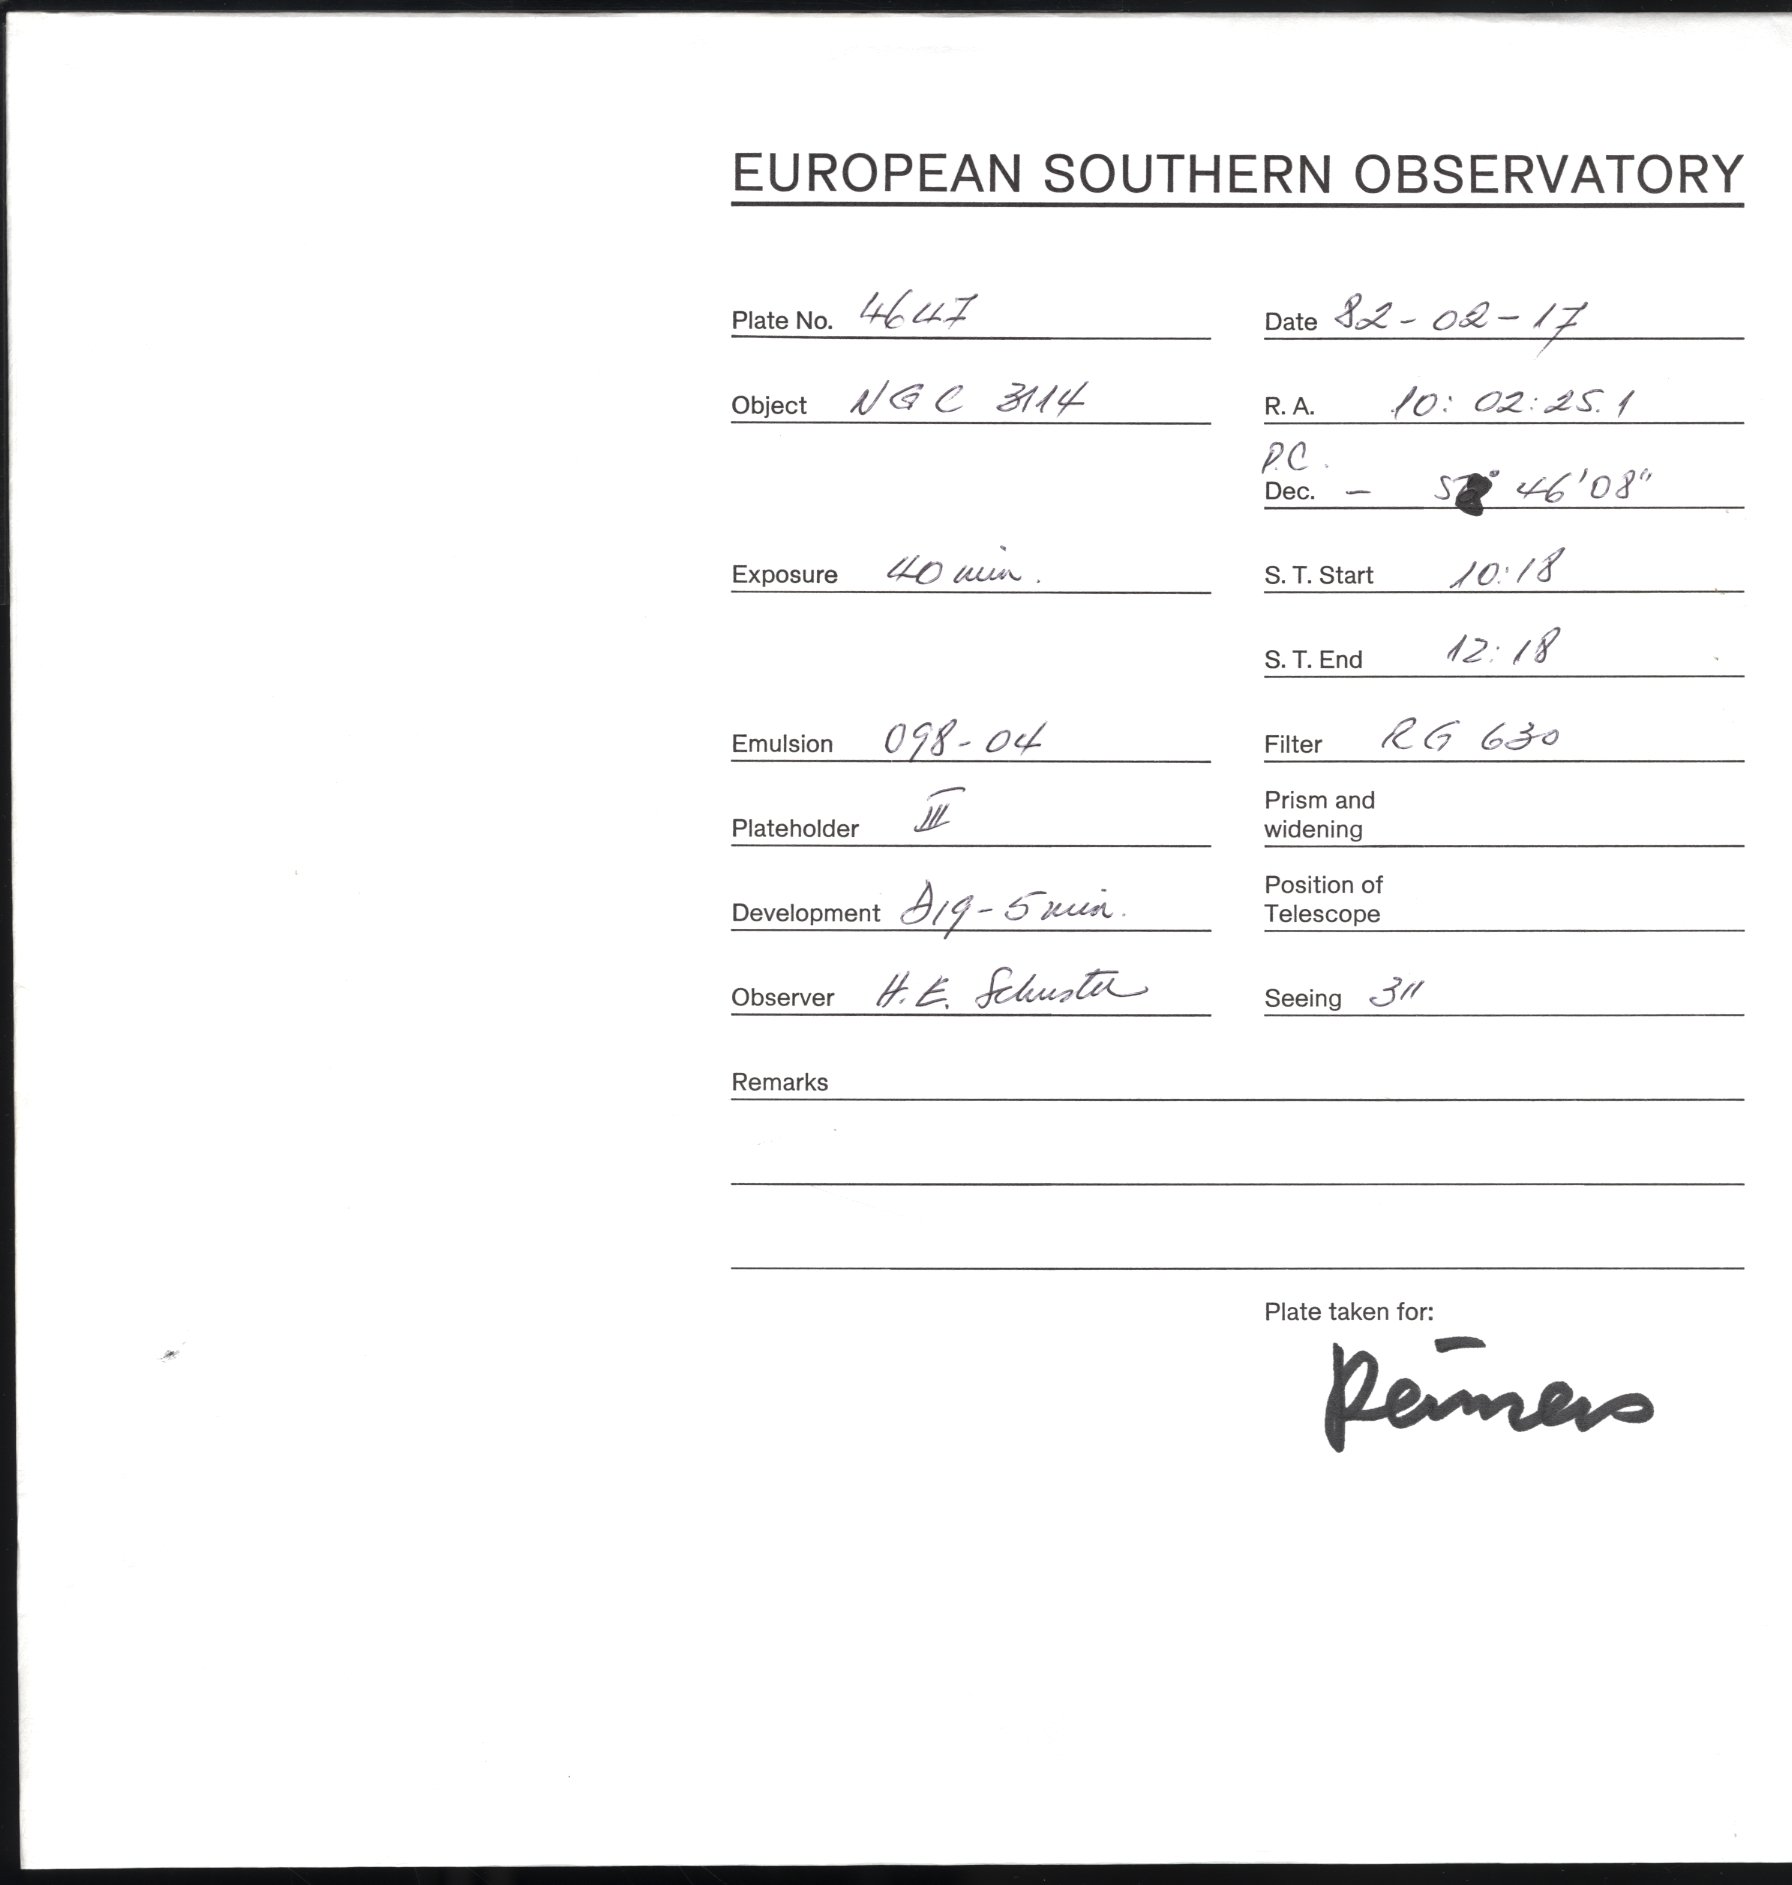 EUROPEAN SOUTHERN OBSERVATORY
Plate No. 4647 Date 82-02-17
Object NGC 3114 R. A. 10: 02:25.1
P.C.
Dec. - 46'08"
Exposure 40 min. S. T. Start 10:18
S. T. End 12:18
Emulsion 098-04 Filter RG 630
Prism and
Plateholder III widening
Position of
Development D19-5 min. Telescope
Observer H.E. Schuster Seeing 3"
Remarks
Plate taken for:
Reimers